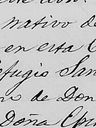 nativo de
en esta C
efugio San
de Don
Doña Con